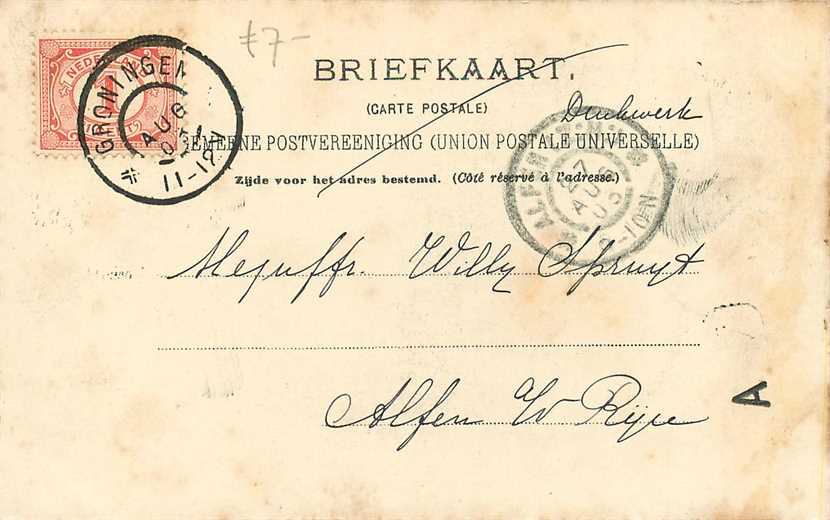 £7-
NEDERLAND
GRONINGEN
AUG
03
11-12N
BRIEFKAART.
(CARTE POSTALE)
Drukwerk
ALGEMEENE POSTVEREENIGING (UNION POSTALE UNIVERSELLE)
Zijde voor het adres bestemd. (Côté réservé à l'adresse.)
ALFEN
AUG
03
-10N
Mejuffr. Willy Spruyt
Alfen a/d Rijn
A